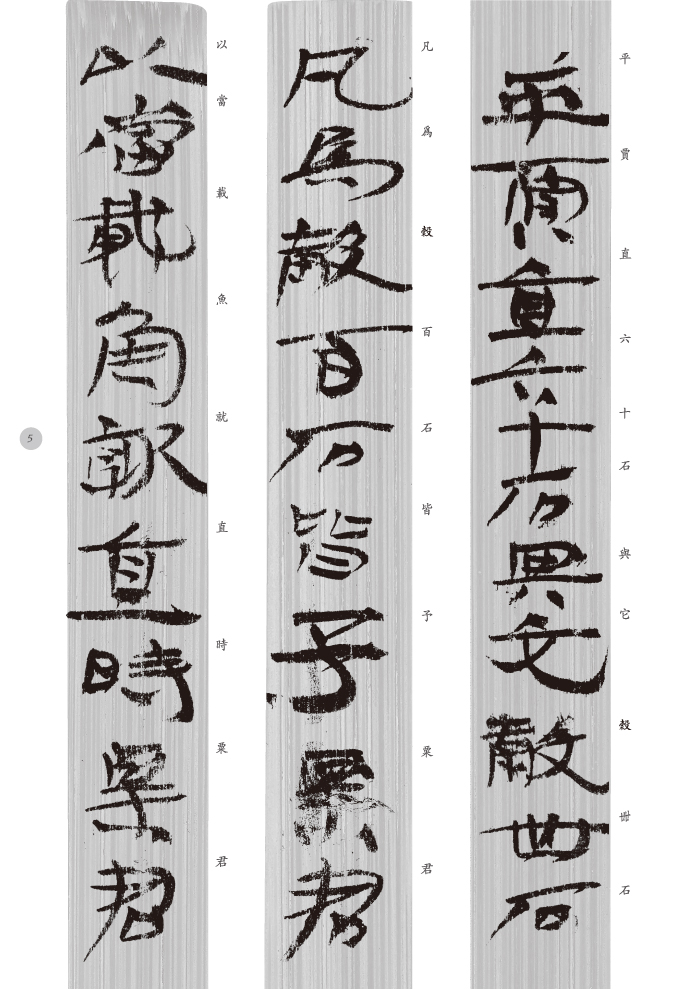 平賈直六十石與它穀卌石
凡為穀百石皆予粟君
以當載魚就直時粟君
5